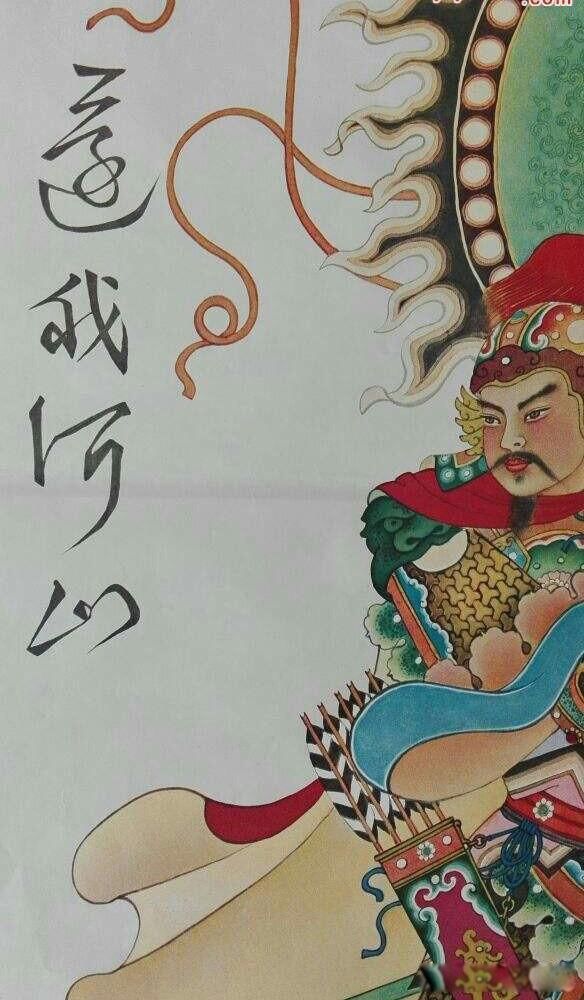 還我河山
.com